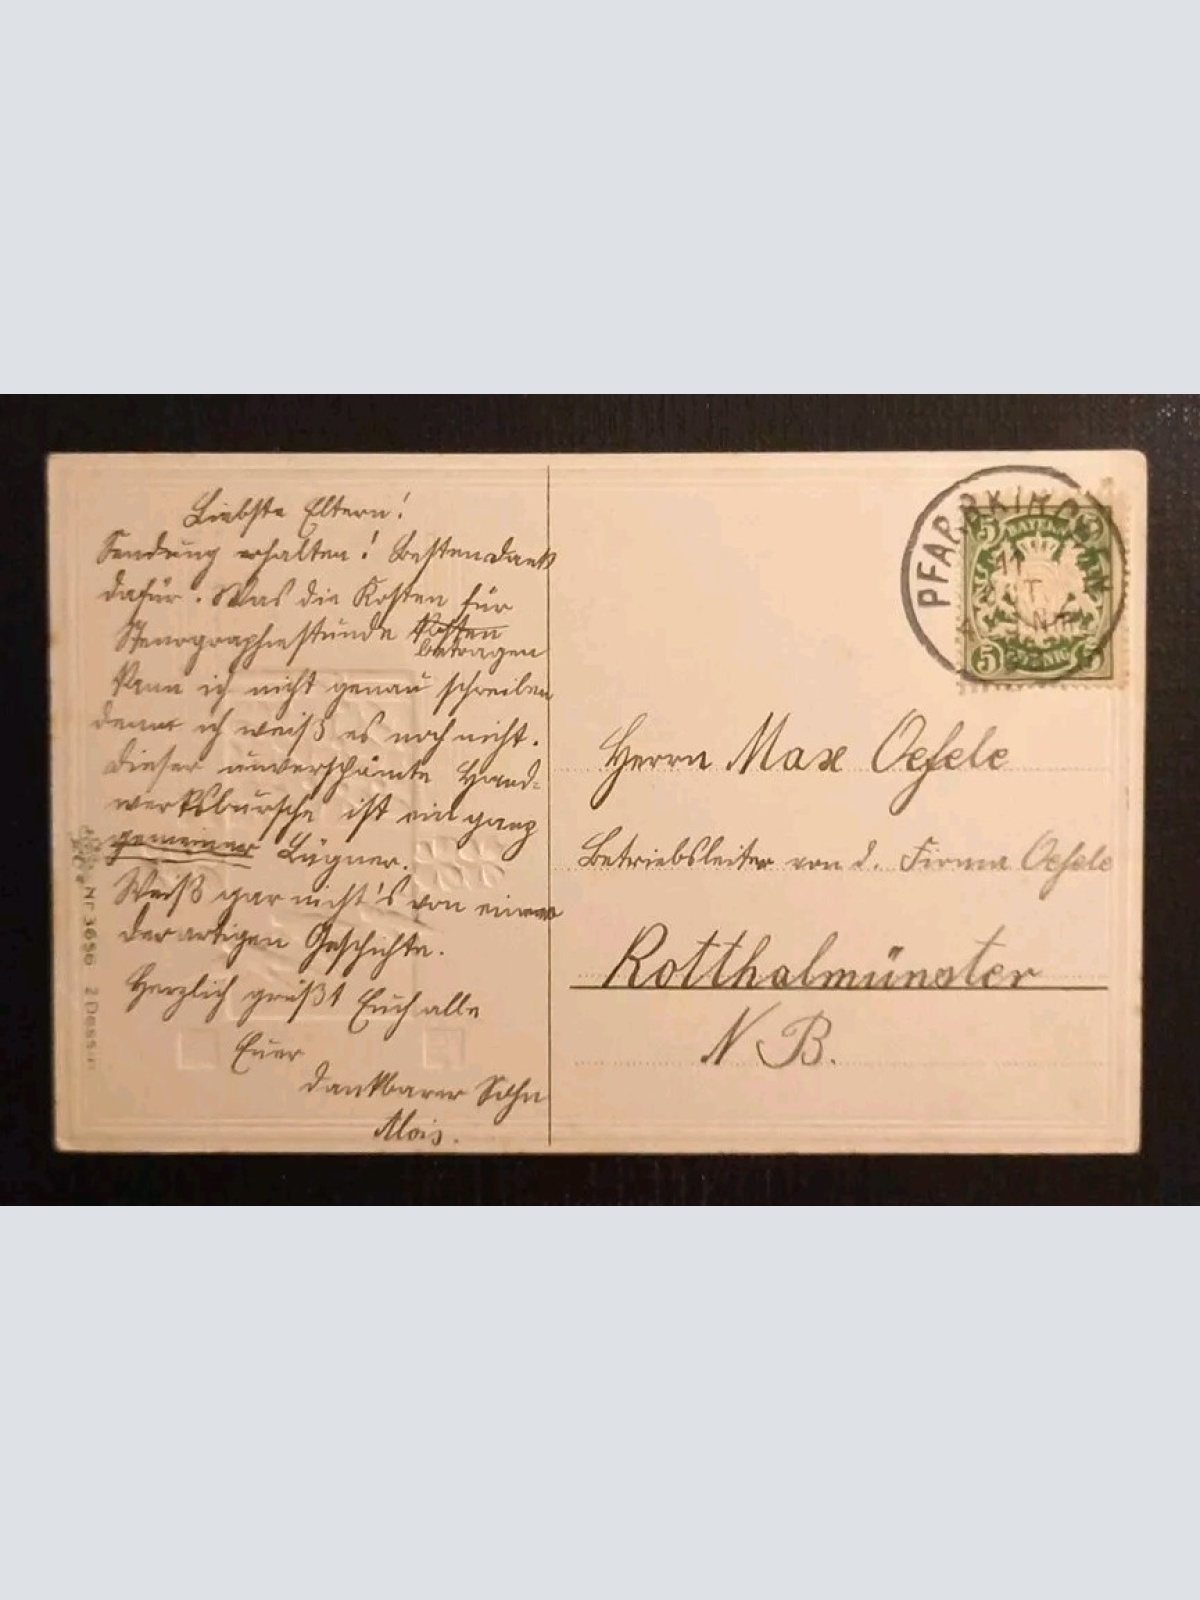 Liebste Eltern!
Sendung erhalten! Besten Dank
dafür. Was die Kosten für
Stenographiestunde Kosten
betragen
kann ich nicht genau schreiben
denn ich weiß es noch nicht.
Dieser unverschämte Hand-
werksbursche ist ein ganz
gemeiner Lügner.
Weiß gar nicht's von einer
derartigen Geschichte.
Herzlich grüßt Euch alle
Euer
dankbarer Sohn
Alois.
Nr 3656 2 Dessin
PFARRKIRCHEN
11
BAYERN
5 5
5 PFENNIG 5
Herrn Max Oefele
Betriebsleiter von d. Firma Oefele
Rotthalmünster
N B.